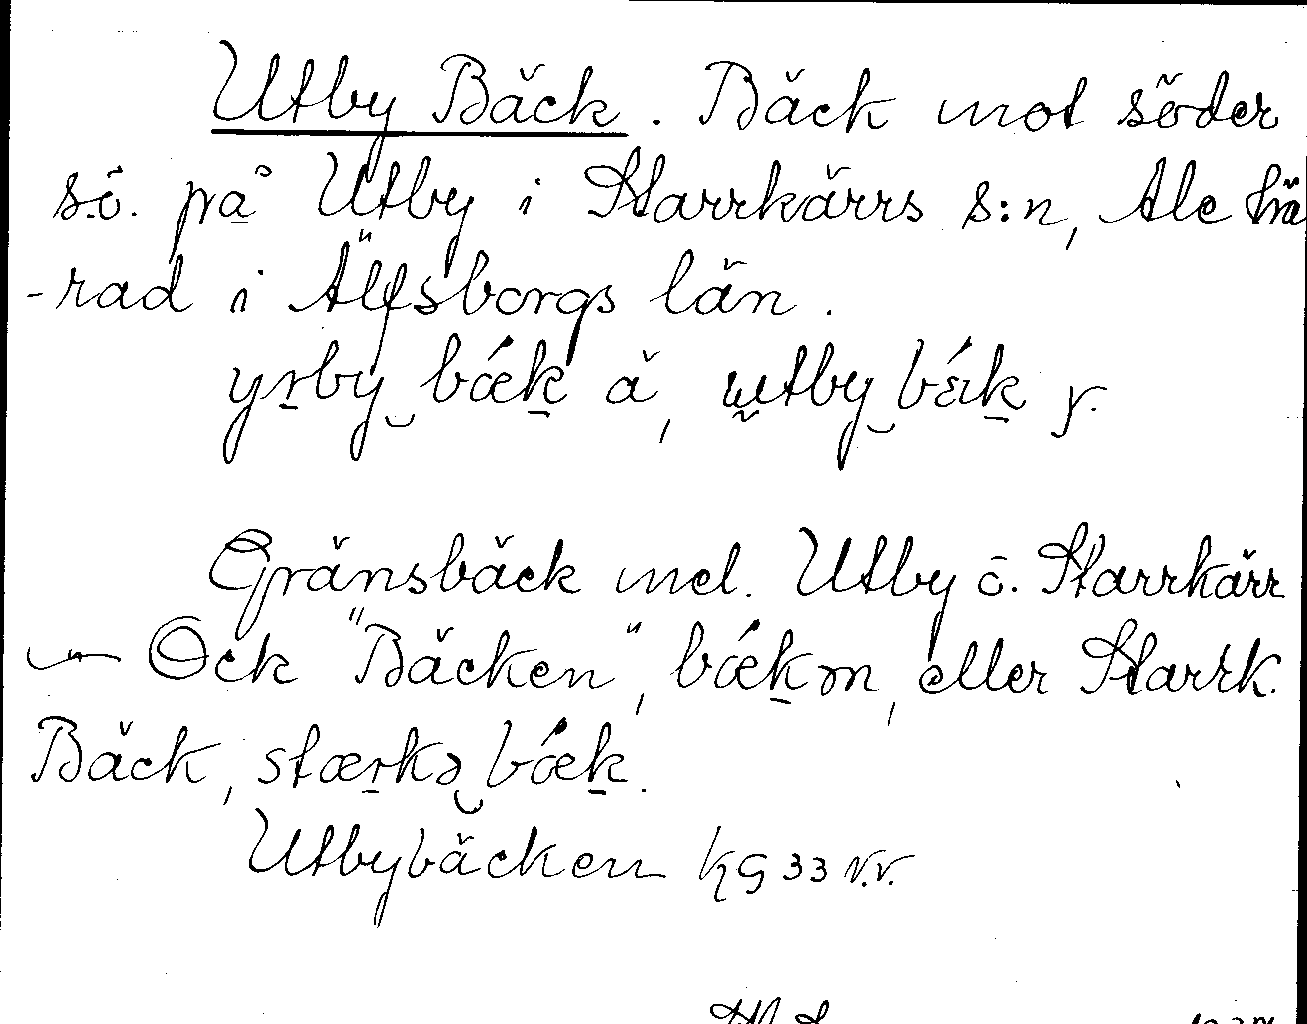 Utby Bäck. Bäck mot söder
s.ö. på Utby i Starrkärrs s:n, Ale hä
-rad i Älfsborgs län.
yrby bǽk ä, utby bék y.
Gränsbäck mel. Utby o. Starrkärr
Ock "Bäcken", bǽkən, eller Starrk.
Bäck, stærkə bǽk.
Utbybäcken KG 33 N.V.